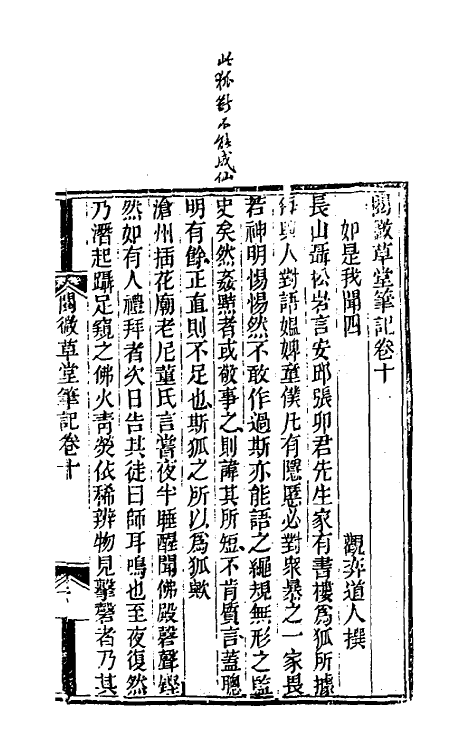 此狐斷不能成仙
閱微草堂筆記卷十
如是我聞四
觀弈道人撰
長山聶松岩言安邱張卯君先生家有書樓爲狐所據
每與人對語媼婢童僕凡有隱慝必對衆暴之一家畏
若神明惕惕然不敢作過斯亦能語之繩規無形之監
史矣然姦黠者或敬事之則諱其所短不肯質言蓋聰
明有餘正直則不足也斯狐之所以爲狐歟
滄州插花廟老尼董氏言嘗夜半睡醒聞佛殿磬聲鏗
然如有人禮拜者次日告其徒曰師耳鳴也至夜復然
乃潛起躡足窺之佛火靑熒依稀辨物見擊磬者乃其
閱微草堂筆記卷十
一